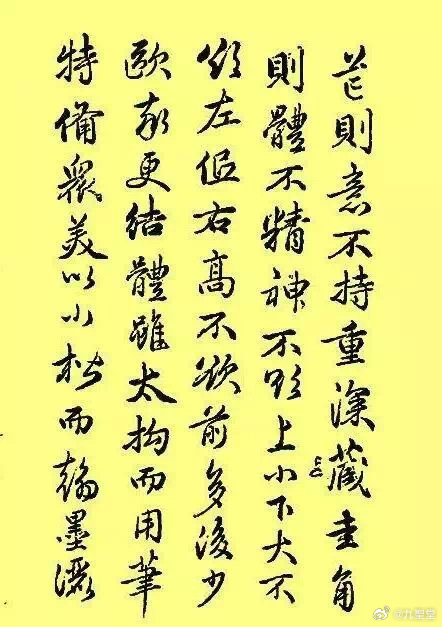 芒則意不持重深藏圭角
則體不精神不欲上小下大不
欲左低右高不欲前多後少
歐率更結體雖太拘而用筆
特備衆美以小楷而翰墨灑